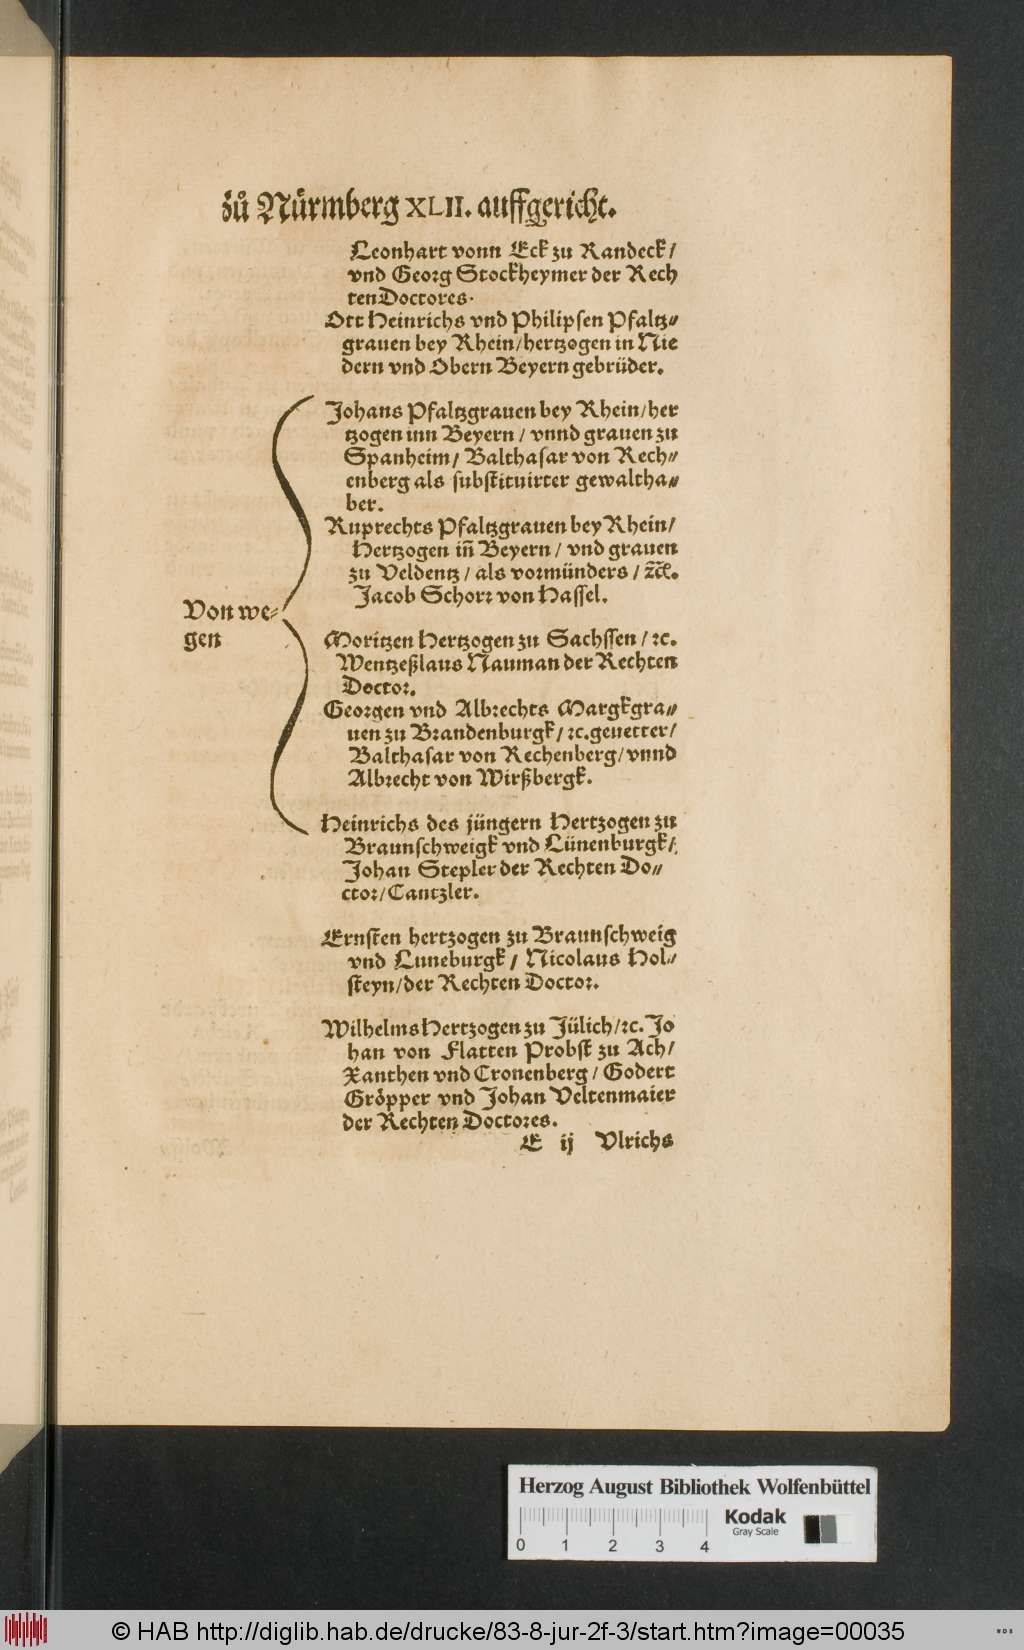 zů Nürmberg XLII. auffgericht.
Leonhart vonn Eck zu Randeck /
vnd Georg Stockheymer der Rech
ten Doctores.
Ott Heinrichs vnd Philipsen Pfaltz⸗
grauen bey Rhein/hertzogen in Nie
dern vnd Obern Beyern gebrüder.
Johans Pfaltzgrauen bey Rhein/her
tzogen inn Beyern / vnnd grauen zu
Spanheim/ Balthasar von Rech⸗
enberg als substituirter gewaltha⸗
ber.
Ruprechts Pfaltzgrauen bey Rhein/
Hertzogen in̄ Beyern / vnd grauen
zu Veldentz / als vormünders / ꝛc̄.
Jacob Schorr von Hassel.
Von we⸗
gen
Moritzen Hertzogen zu Sachssen / ꝛc.
Wentzeßlaus Nauman der Rechten
Doctor.
Georgen vnd Albrechts Margkgra⸗
uen zu Brandenburgk / ꝛc. geuetter /
Balthasar von Rechenberg / vnnd
Albrecht von Wirßbergk.
Heinrichs des jüngern Hertzogen zu
Braunschweigk vnd Lünenburgk /
Johan Stepler der Rechten Do⸗
ctor/ Cantzler.
Ernsten hertzogen zu Braunschweig
vnd Luneburgk / Nicolaus Hol⸗
steyn/der Rechten Doctor.
Wilhelms Hertzogen zu Jülich/ꝛc. Jo
han von Flatten Probst zu Ach/
Xanthen vnd Cronenberg / Godert
Gröpper vnd Johan Veltenmaier
der Rechten Doctores.
E ij Vlrichs
Herzog August Bibliothek Wolfenbüttel
0 1 2 3 4
Kodak
Gray Scale
© HAB http://diglib.hab.de/drucke/83-8-jur-2f-3/start.htm?image=00035